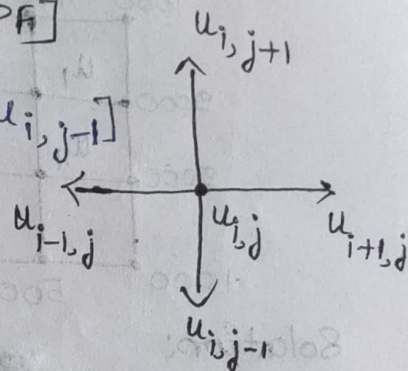 PF]
u_{i,j+1}
u_{i,j-1}]
u_{i-1,j}
u_{i,j}
u_{i+1,j}
u_{i,j-1}